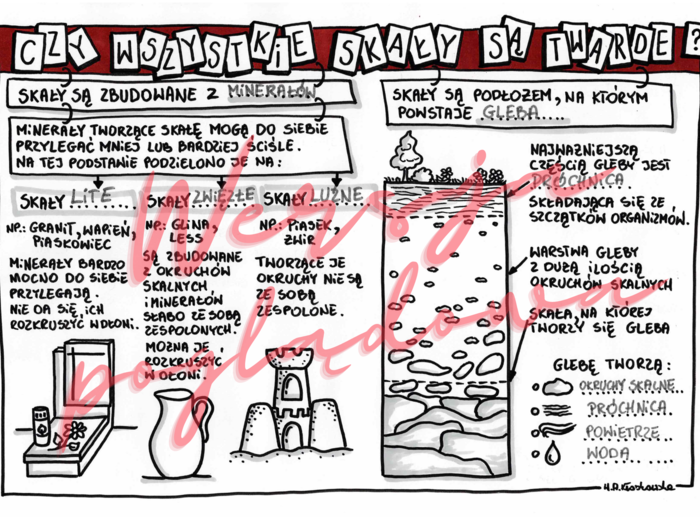 CZY WSZYSTKIE SKAŁY SĄ TWARDE?
SKAŁY SĄ ZBUDOWANE Z MINERAŁÓW
MINERAŁY TWORZĄCE SKAŁĘ MOGĄ DO SIEBIE
PRZYLEGAĆ MNIEJ LUB BARDZIEJ ŚCIŚLE.
NA TEJ PODSTAWIE PODZIELONO JE NA:
SKAŁY LITE...
NP.: GRANIT, WAPIEŃ,
PIASKOWIEC
MINERAŁY BARDZO
MOCNO DO SIEBIE
PRZYLEGAJĄ.
NIE DA SIĘ ICH
ROZKRUSZYĆ W DŁONI.
SKAŁY ZWIĘZŁE
NP.: GLINA,
LESS
SĄ ZBUDOWANE
Z OKRUCHÓW
SKALNYCH
I MINERAŁÓW
SŁABO ZE SOBĄ
ZESPOLONYCH.
MOŻNA JE
ROZKRUSZYĆ
W DŁONI.
SKAŁY LUŹNE..
NP.: PIASEK,
ŻWIR
TWORZĄCE JE
OKRUCHY NIE SĄ
ZE SOBĄ
ZESPOLONE.
SKAŁY SĄ PODŁOŻEM, NA KTÓRYM
POWSTAJE .GLEBA....
NAJWAŻNIEJSZĄ
CZĘŚCIĄ GLEBY JEST
PRÓCHNICA.
SKŁADAJĄCA SIĘ ZE
SZCZĄTKÓW ORGANIZMÓW.
WARSTWA GLEBY
Z DUŻĄ ILOŚCIĄ
OKRUCHÓW SKALNYCH
SKAŁA, NA KTÓREJ
TWORZY SIĘ GLEBA
GLEBĘ TWORZĄ:
OKRUCHY SKALNE..
PRÓCHNICA..
POWIETRZE..
WODA....
Wersja
poglądowa